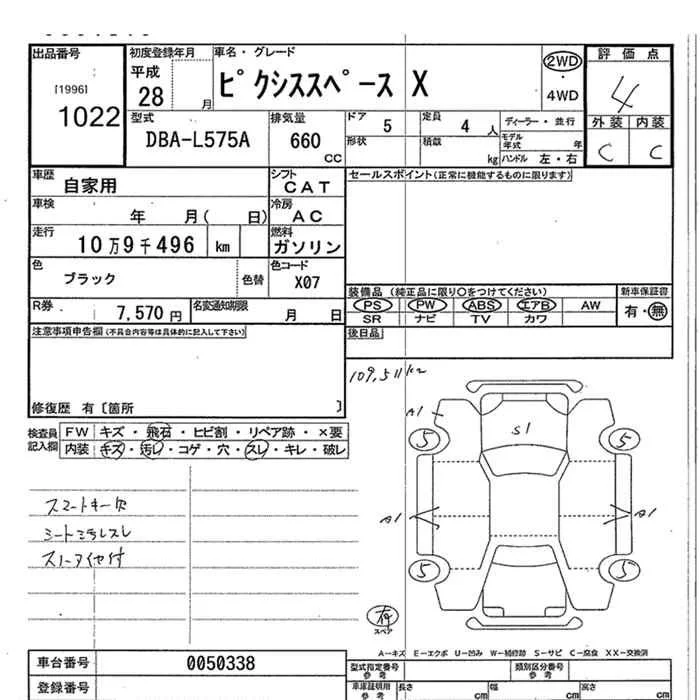 出品番号
[1996]
1022
初度登録年月
平成
28 月
車名・グレード
ピクシススペース X
2WD
・
4WD
評価点
4
外装 内装
C C
型式
DBA-L575A
排気量
660
CC
ドア
5
形状
定員
4 人
積載
kg
ディーラー・並行
モデル年式 年
ハンドル 左・右
車歴
自家用
シフト
CAT
車検
年 月( 日)
冷房
AC
走行
10万9千496 km
燃料
ガソリン
色
ブラック
色替
色コード
X07
R券
7,570円
名変通知期限
月 日
セールスポイント(正常に機能するものに限ります)
装備品 (純正品に限り○をつけてください)
PS PW ABS エアB AW
SR ナビ TV カワ
新車保証書
有・無
後日品
注意事項申告欄(不具合内容等は具体的に記入して下さい)
修復歴 有〔箇所 〕
検査員
記入欄
FW キズ・飛石・ヒビ割・リペア跡・×要
内装 キズ・汚レ・コゲ・穴・スレ・キレ・破レ
スマートキー欠
シート汚れスレ
スノータイヤ付
109,511km
A1
S1
5 5
A1 A1
5 5
有
スペア
A-キズ E-エクボ U-凹み W-補修跡 S-サビ C-腐食 XX-交換済
車台番号
0050338
登録番号
型式指定番号
参考
類別区分番号
参考
車庫証明用
参考
長さ cm
幅 cm
高さ cm